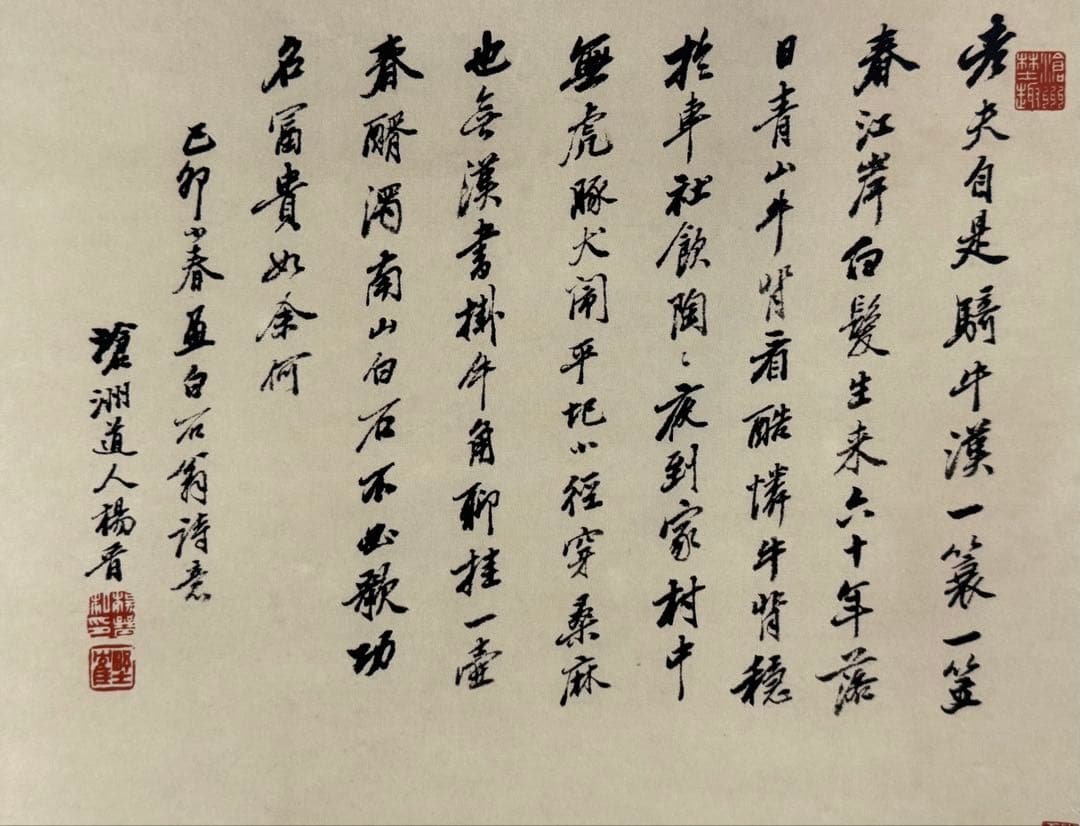 老夫自是騎牛漢一簑一笠
春江岸白髮生来六十年落
日青山牛背看酷憐牛背穩
於車社飲陶〻夜到家村中
無虎豚犬鬧平地小徑穿桑麻
也無漢書掛牛角聊挂一壺
春醑濁南山白石不必歌功
名富貴如余何
己卯小春画白石翁詩意
滄洲道人楊晉